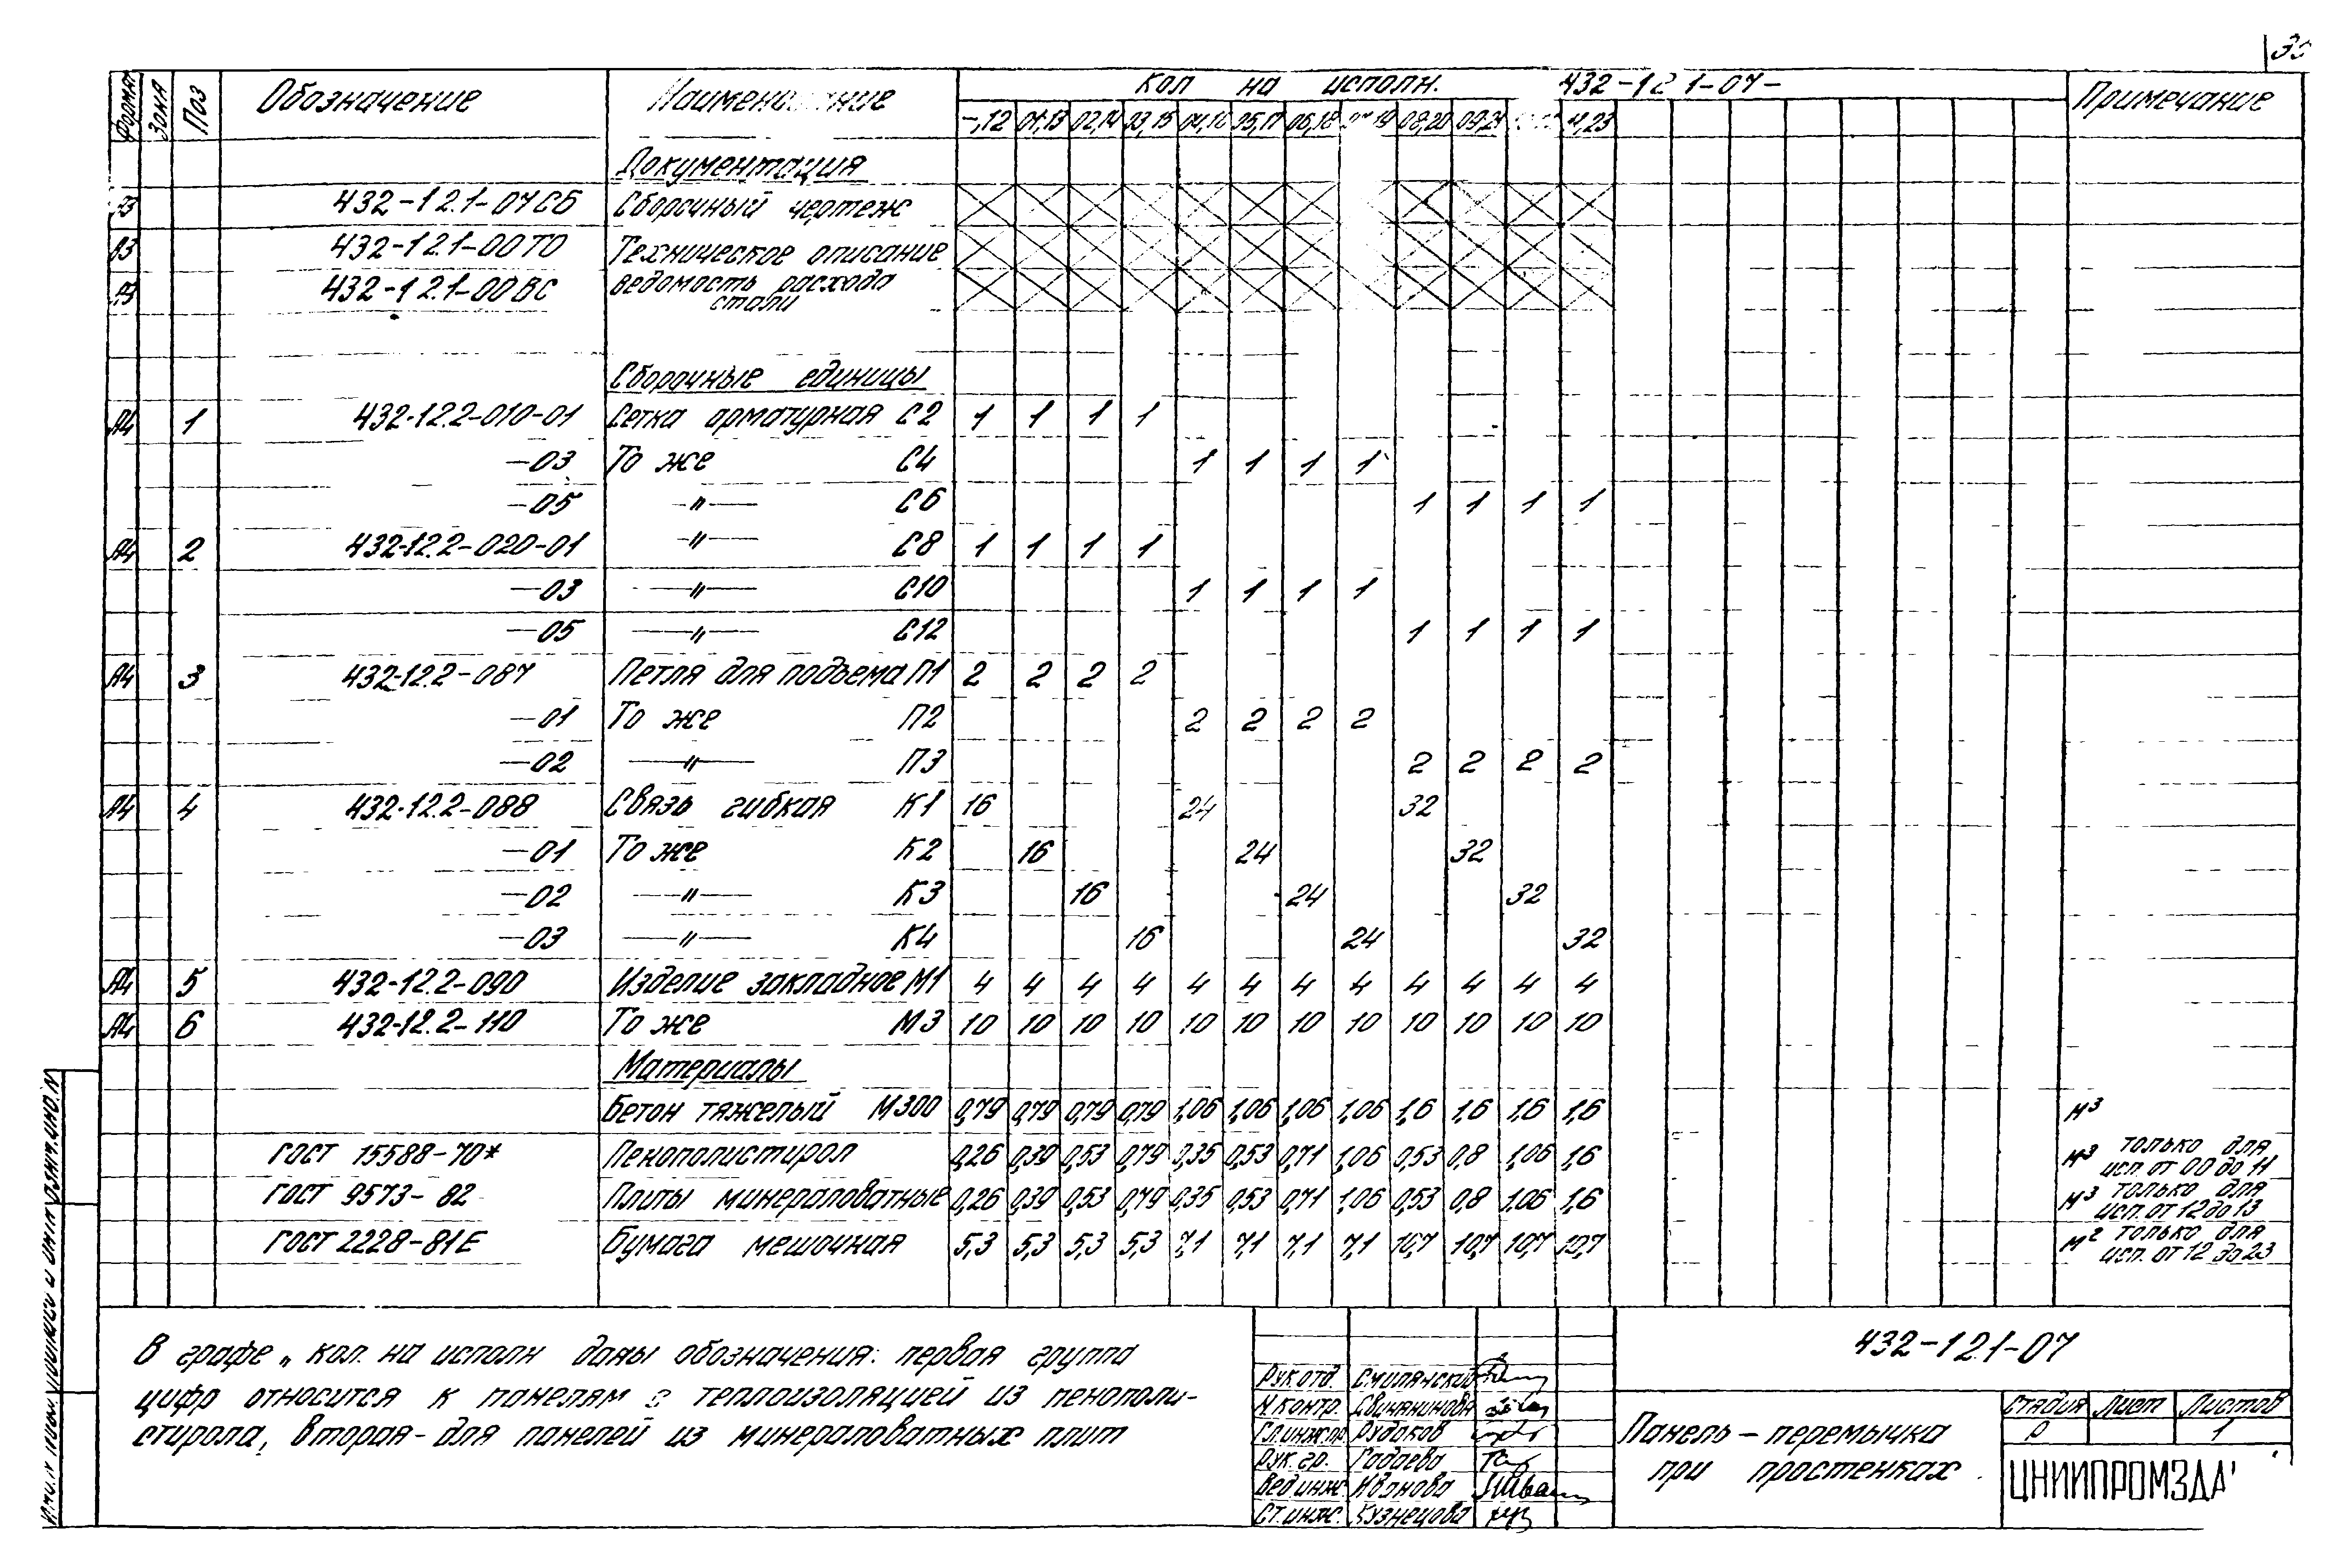 Формат Зона Поз Обозначение Кол на исполн. 432-12 1-07- Примечание
-,12 01,13 02,14 03,15 04,16 05,17 06,18 19 08,20 09,21 11,23
Документация
432-12.1-07СБ Сборочный чертеж
432-12.1-00ТО Техническое описание
432-12.1-00ВС Ведомость расхода
стали
Сборочные единицы
А4 1 432-12.2-010-01 Сетка арматурная С2 1 1 1 1
-03 То же С4 1 1 1 1
-05 -"- С6 1 1 1 1
А4 2 432-12.2-020-01 -"- С8 1 1 1 1
-03 -"- С10 1 1 1 1
-05 -"- С12 1 1 1 1
А4 3 432-12.2-087 Петля для подъема П1 2 2 2 2
-01 То же П2 2 2 2 2
-02 -"- П3 2 2 2 2
А4 4 432-12.2-088 Связь гибкая К1 16 24 32
-01 То же К2 16 24 32
-02 -"- К3 16 24 32
-03 -"- К4 16 24 32
А4 5 432-12.2-090 Изделие закладное М1 4 4 4 4 4 4 4 4 4 4 4 4
А4 6 432-12.2-110 То же М3 10 10 10 10 10 10 10 10 10 10 10 10
Материалы
Бетон тяжелый М300 0,79 0,79 0,79 0,79 1,06 1,06 1,06 1,06 1,6 1,6 1,6 1,6 м³
ГОСТ 15588-70* Пенополистирол 0,26 0,39 0,53 0,79 0,35 0,53 0,71 1,06 0,53 0,8 1,06 1,6 м³ только для
исп. от 00 до 11
ГОСТ 9573-82 Плиты минераловатные 0,26 0,39 0,53 0,79 0,35 0,53 0,71 1,06 0,53 0,8 1,06 1,6 м³ только для
исп. от 12 до 13
ГОСТ 2228-81Е Бумага мешочная 5,3 5,3 5,3 5,3 7,1 7,1 7,1 7,1 10,7 10,7 10,7 10,7 м² только для
исп. от 12 до 23
В графе „кол. на исполн даны обозначения: первая группа
цифр относится к панелям с теплоизоляцией из пенополи-
стирола, вторая - для панелей из минераловатных плит
432-12.1-07
Рук.отд. Смилянский
Н.контр. Свинянинова
Гл.инж.пр Рудаков
Рук.гр. Гадаева
Вед.инж. Иванова
Ст.инж. Кузнецова
Панель - перемычка
при простенках
Стадия Лист Листов
Р 1
ЦНИИПРОМЗДА